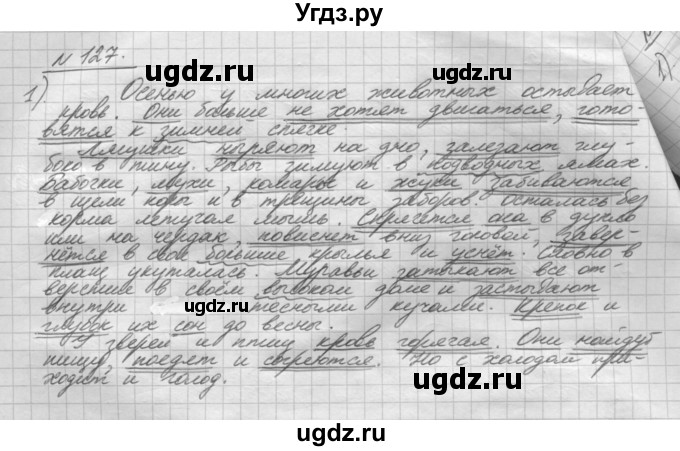 Угдз.ру
№ 127.
1). Осенью у многих животных остывает
кровь. Они больше не хотят двигаться, гото-
вятся к зимней спячке.
Лягушки ныряют на дно, залезают глу-
боко в тину. Рыбы зимуют в подводных ямах.
Бабочки, мухи, комары и жуки забиваются
в щели коры и в трещины заборов. Осталась без
корма летучая мышь. Спрячется она в дупло
или на чердак, повиснет вниз головой, завер-
нётся в свои большие крылья и уснёт. Словно в
плащ укуталась. Муравьи затыкают все от-
верстия в своём высоком доме и застывают
внутри тесными кучами. Крепок и
глубок их сон до весны.
У зверей и птиц кровь горячая. Они найдут
пищу, поедят и согреются. Но с холодом при-
ходит и голод.
ugdz.ru
ugdz.ru
ugdz.ru
ugdz.ru
ugdz.ru
ugdz.ru
ugdz.ru
ugdz.ru
ugdz.ru